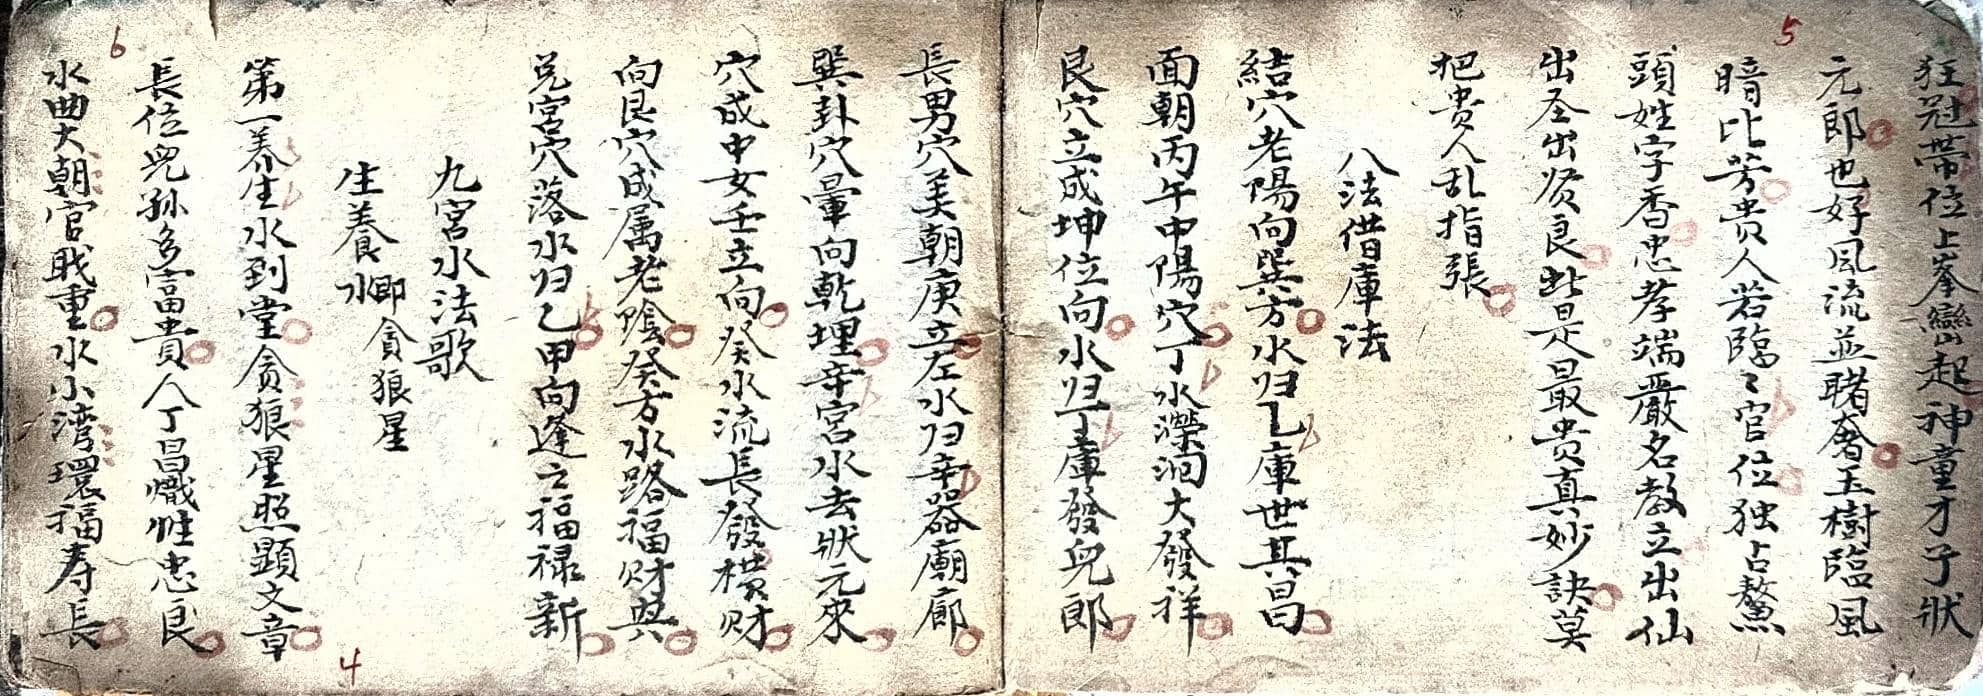 5
狂冠帶位上峯巒起神童才子狀
元郎也好風流並睹奢玉樹臨風
暗比芳貴人若臨〻官位独占鰲
頭姓字香忠孝端嚴名教立出仙
出圣出贤良此是最贵真妙訣莫
把贵人乱指張
八法借庫法
結穴老陽向巽方水归乙庫世其昌
面朝丙午中陽穴丁水瀠洄大發祥
艮穴立成坤位向水归丁庫發兒郎
長男穴美朝庚立左水归辛器廟廊
巽卦穴暈向乾埋辛宮水去狀元來
穴成中女壬立向癸水流長發横财
向艮穴成属老陰癸方水路福财興
兑宮穴落水归乙甲向逢之福禄新
九宮水法歌
生養水卿貪狼星
第一养生水到堂貪狼星照顯文章
長位兒孫多富貴人丁昌熾性忠良
水曲大朝官戝重水小湾環福寿長
6
4